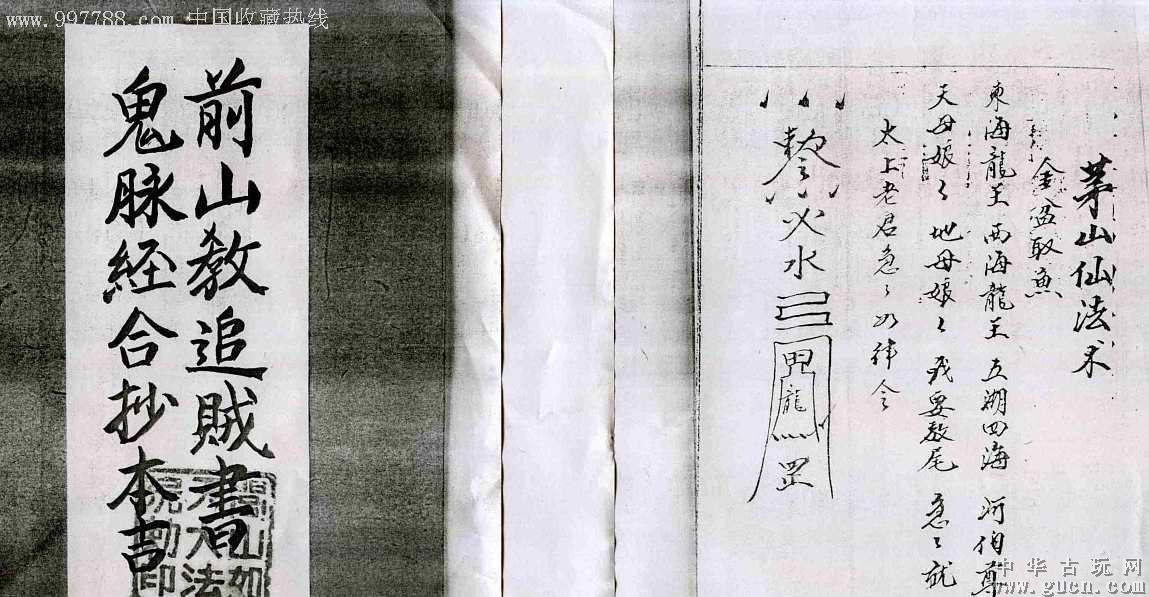 www.997788.com 中国收藏热线
前山教追贼書
鬼脉経合抄本吉
茅山仙法术
金盆取魚
東海龍王 西海龍王 五湖四海 河伯尊
天母娘〻 地母娘〻 我要教尾 急〻就
太上老君急〻如律令
火水
龍
罡
中华古玩网
www.gucn.com